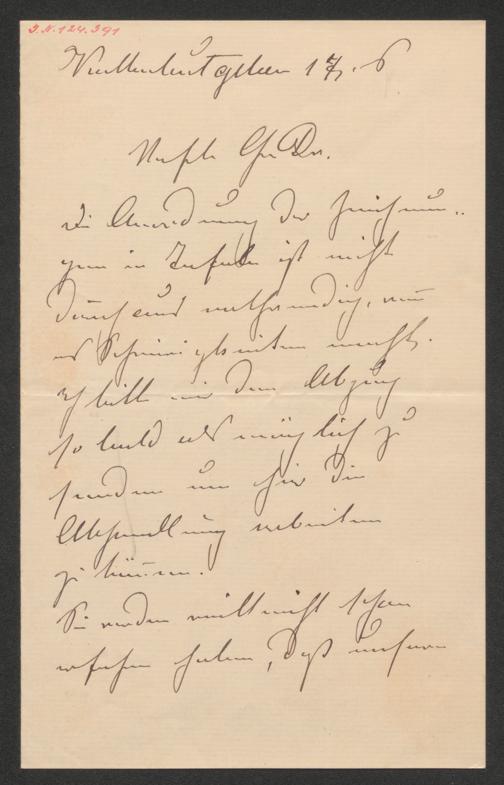 J.N. 124.391
Kaltenleutgeben 17. 6
Verehrter Herr Dr.
Die Anordnung der Zeichnun-
gen in Tafeln ist nicht
durchaus nothwendig, wenn
es Schwierigkeiten macht.
Ich bitte mir den Abzug
so bald als möglich zu
senden um hier die
Abhandlung arbeiten
zu können.
Sie werden vielleicht schon
erfahren haben, daß unsere